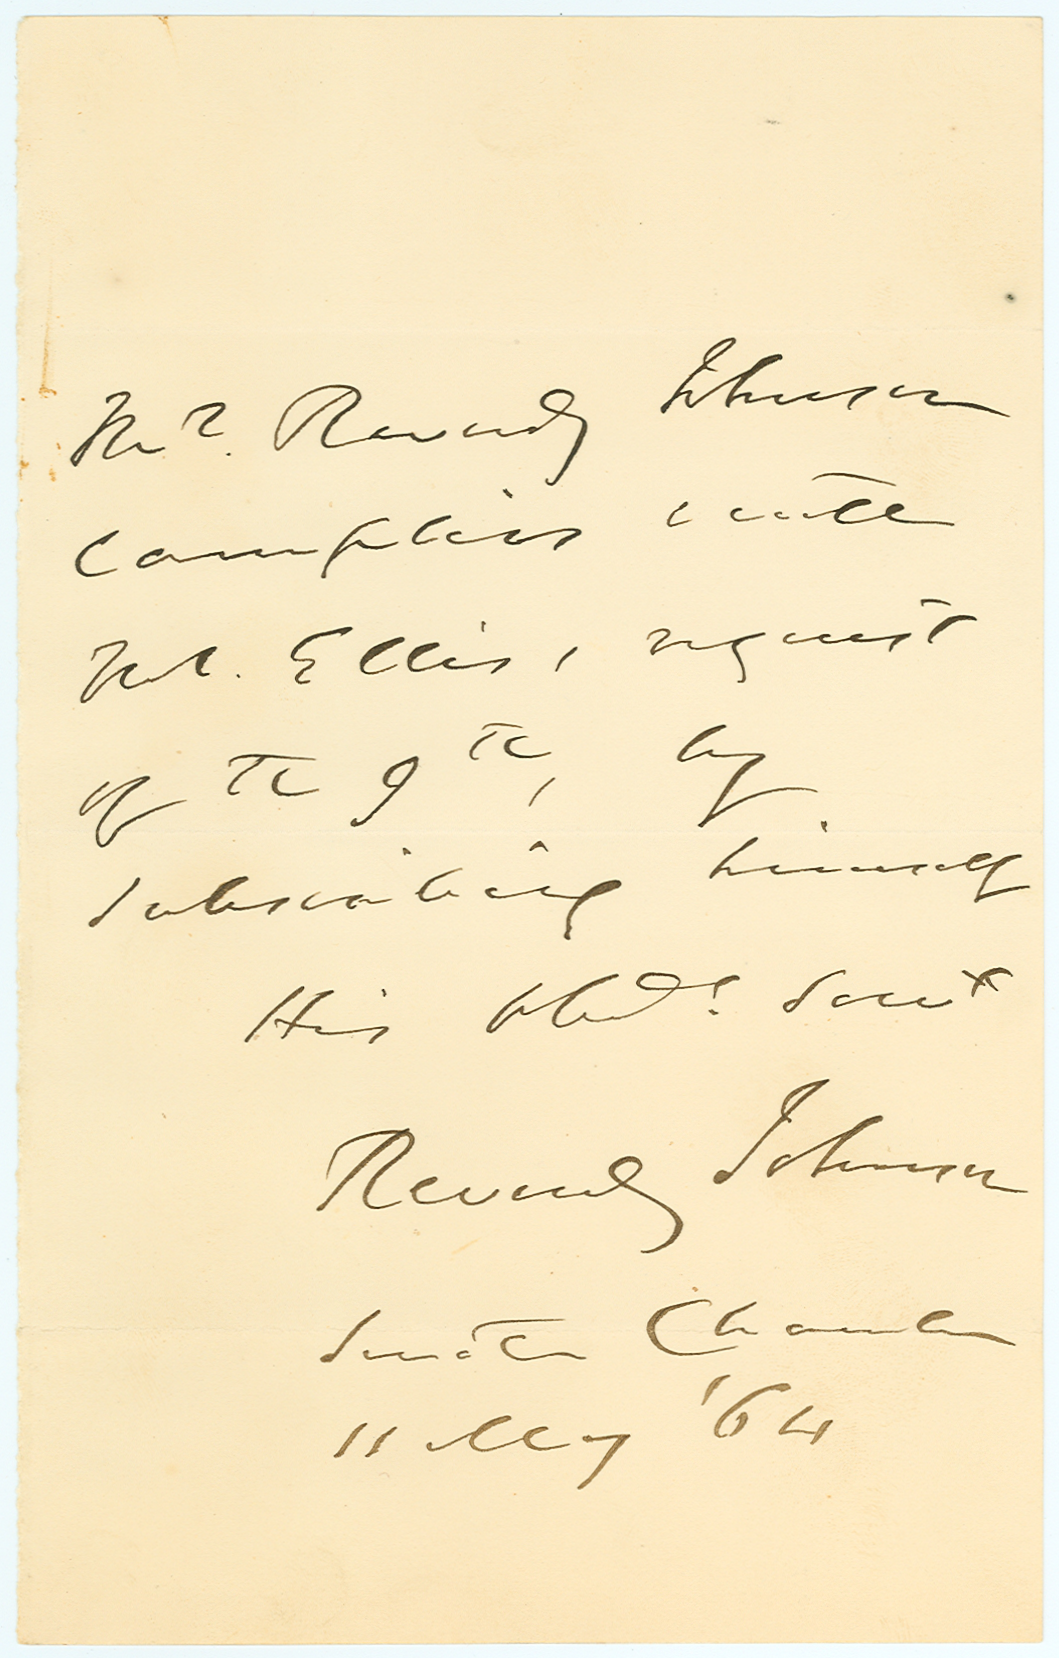 Mr. Reverdy Johnson
complies with
Mr. Ellis' request
of the 9th, by
subscribing himself
His Obdt. Servt
Reverdy Johnson
Senate Chamber
11 May '64